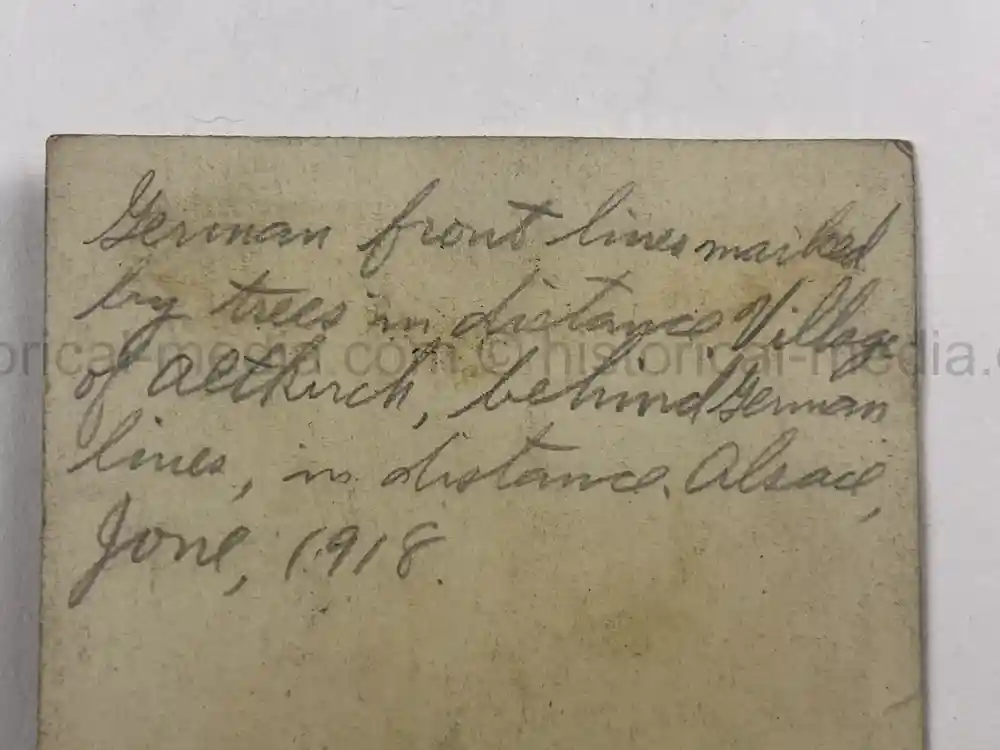 German front lines marked
by trees in distance. Village
of Altkirch, behind German
lines, in distance. Alsace,
June, 1918.
historical-media.com ©historical-media.c